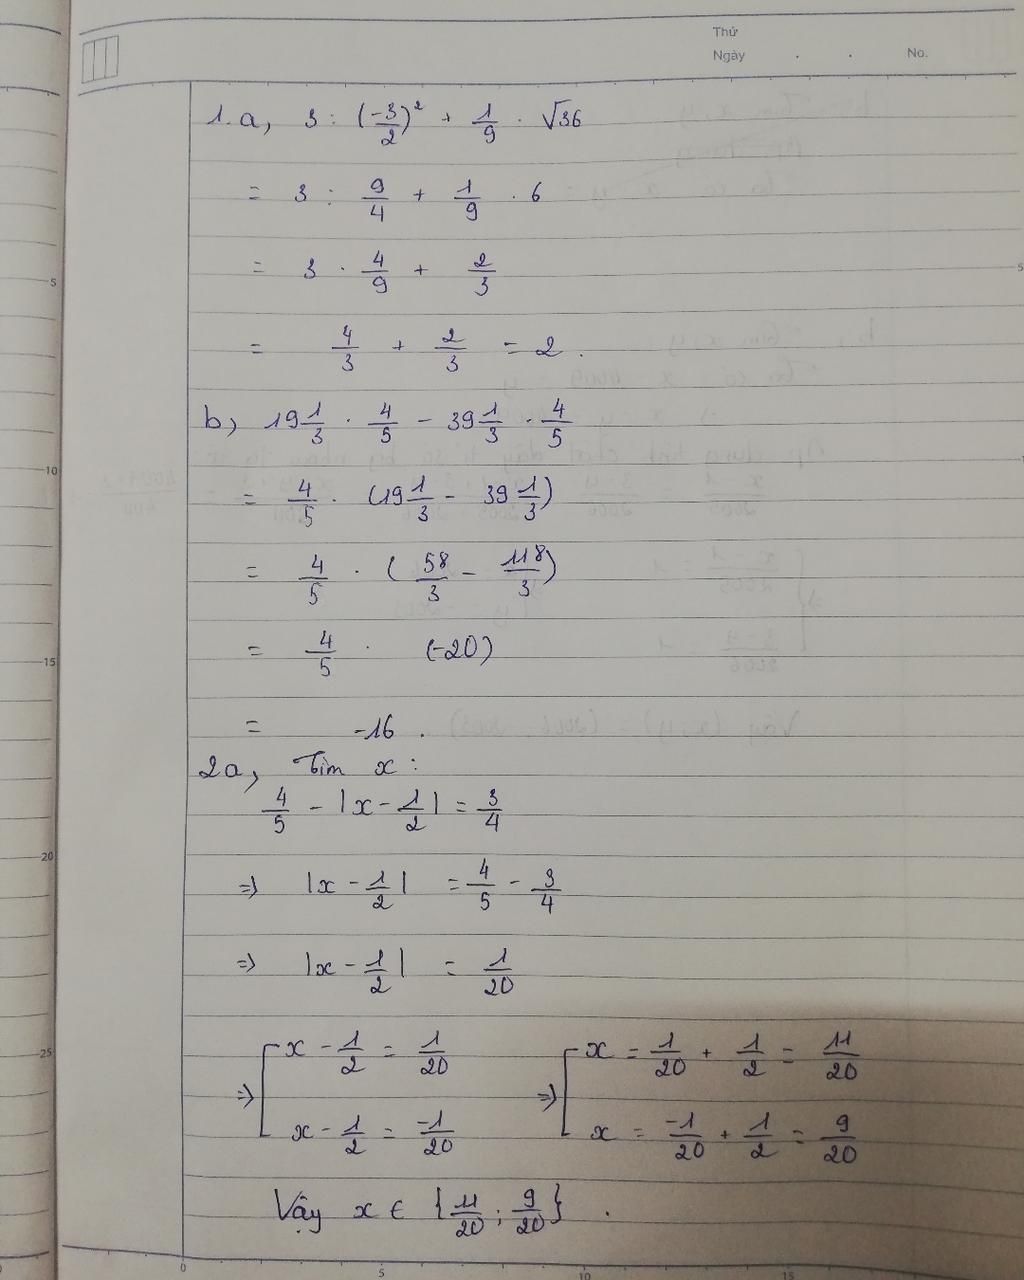 Thứ
Ngày . . No.
1. a, 3 : (-3/2)² + 1/9 . √36
= 3 : 9/4 + 1/9 . 6
= 3 . 4/9 + 2/3
= 4/3 + 2/3 = 2 .
b, 19 1/3 . 4/5 - 39 1/3 . 4/5
= 4/5 . (19 1/3 - 39 1/3)
= 4/5 . (58/3 - 118/3)
= 4/5 . (-20)
= -16 .
2a, Tìm x :
4/5 - |x - 1/2| = 3/4
=> |x - 1/2| = 4/5 - 3/4
=> |x - 1/2| = 1/20
=> [ x - 1/2 = 1/20 => [ x = 1/20 + 1/2 = 11/20
x - 1/2 = -1/20 x = -1/20 + 1/2 = 9/20
Vậy x ∈ {11/20 ; 9/20} .
5
10
15
20
25
0 5 10 15